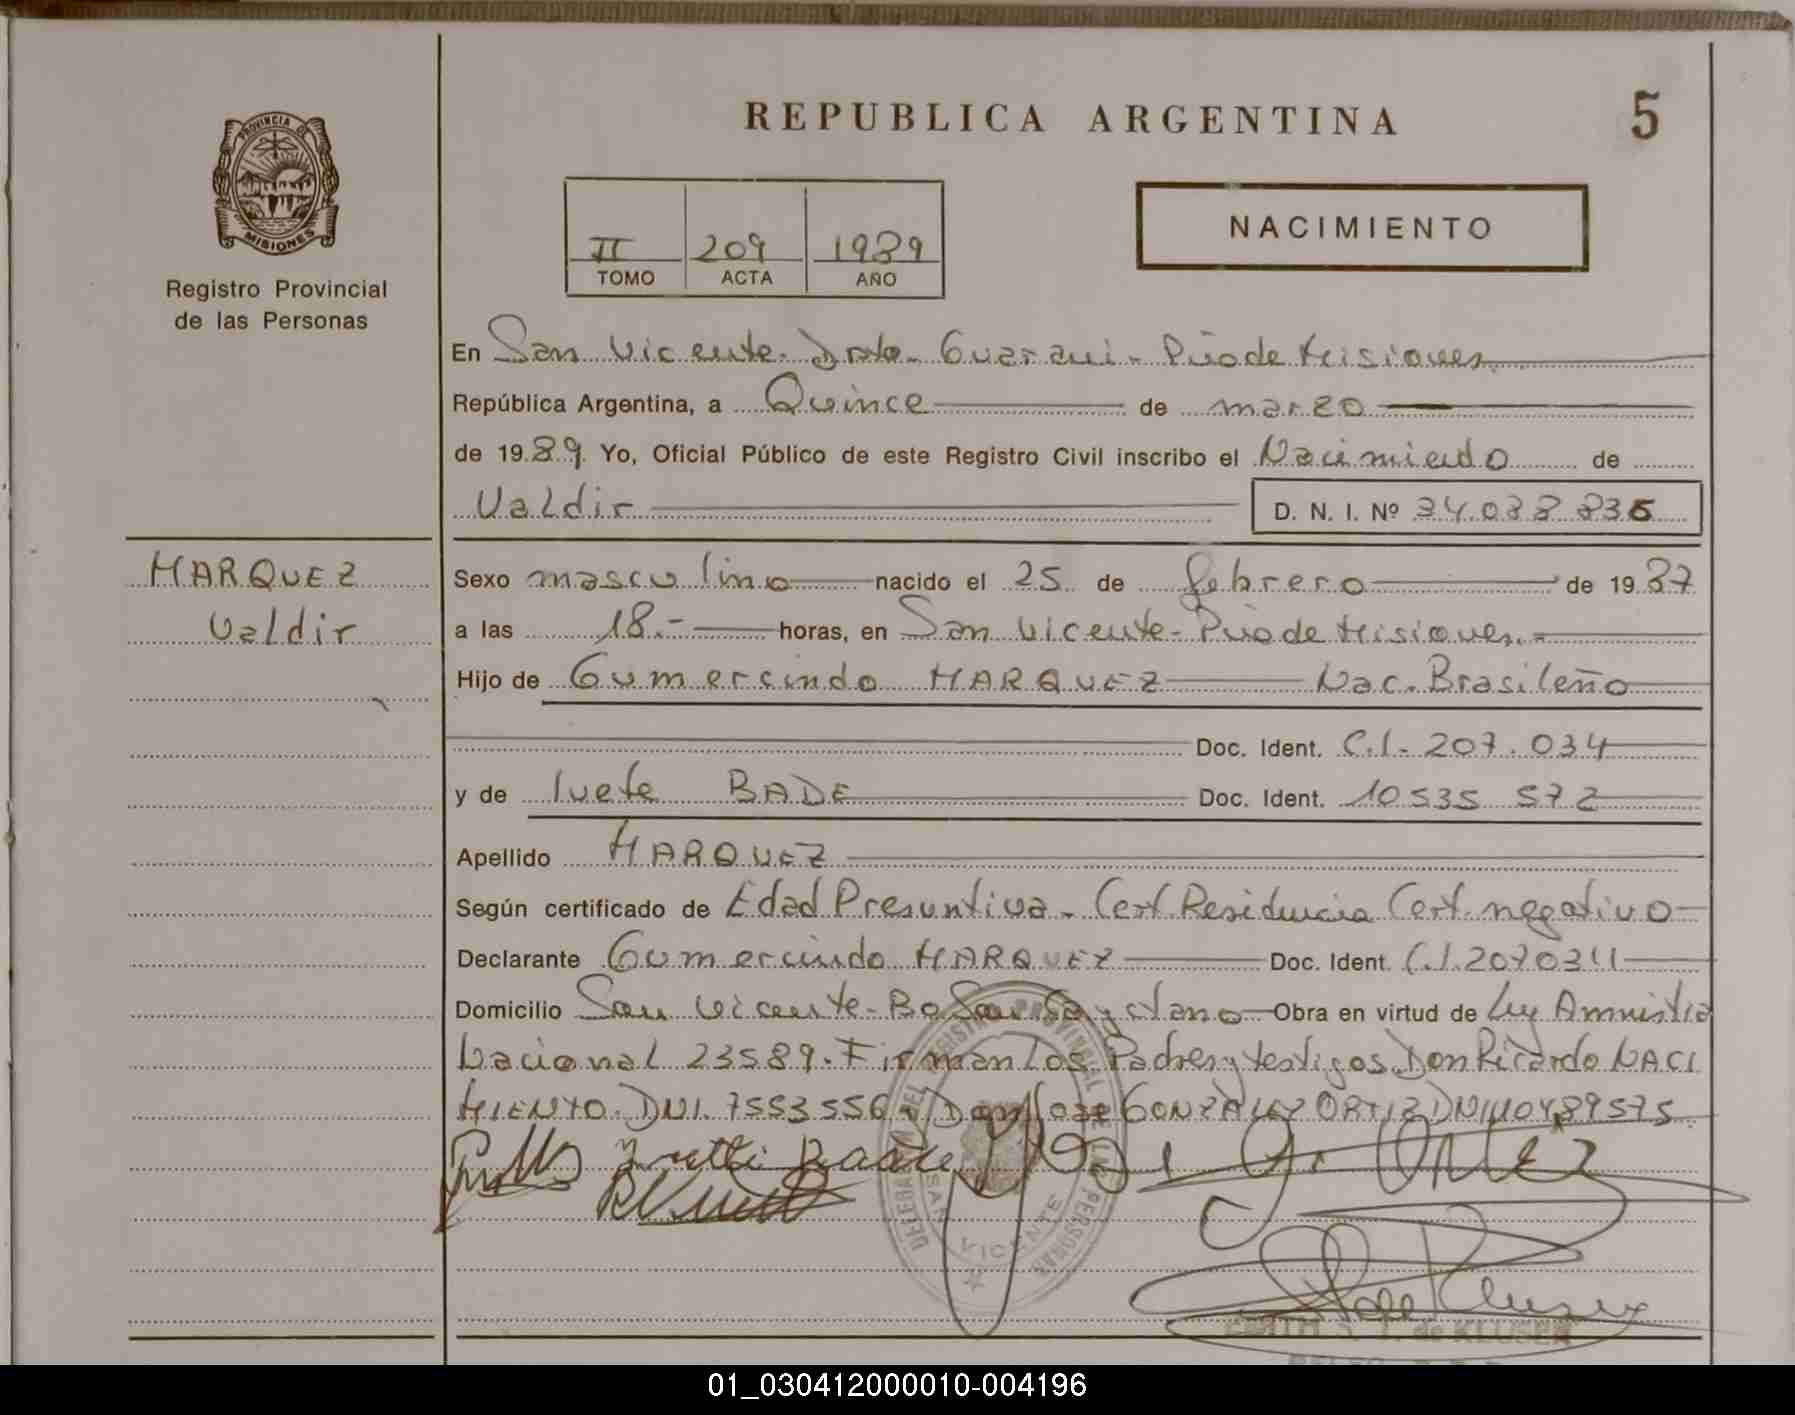 REPUBLICA ARGENTINA
5
PROVINCIA DE
MISIONES
Registro Provincial
de las Personas
II 209 1989
TOMO ACTA AÑO
NACIMIENTO
En San Vicente. Dpto. Guarani - Pcia de Misiones
República Argentina, a Quince de marzo
de 1989. Yo, Oficial Público de este Registro Civil inscribo el Nacimiento de
Valdir D. N. I. Nº 34.088 836
MARQUEZ
Valdir
Sexo masculino nacido el 25 de febrero de 1987
a las 18.- horas, en San Vicente - Pcia de Misiones.-
Hijo de Gumercindo MARQUEZ Nac. Brasileño
Doc. Ident. C.I. 207.034
y de Ivete BADE Doc. Ident. 10 535 572
Apellido MARQUEZ
Según certificado de Edad Presuntiva. Cert. Residencia Cert. negativo
Declarante Gumercindo MARQUEZ Doc. Ident. C.I. 207034
Domicilio San Vicente - Bo San Cayetano Obra en virtud de Ley Amnistia
Nacional 23589. Firman Los Padres y testigos Don Ricardo NACI
MIENTO. DNI. 7553556 y Don Jose GONZALEZ ORTIZ DNI
DELEGACION DEL REGISTRO PROVINCIAL DE LAS PERSONAS
SAN VICENTE
EDITH S. T. de KLUSER
01_030412000010-004196